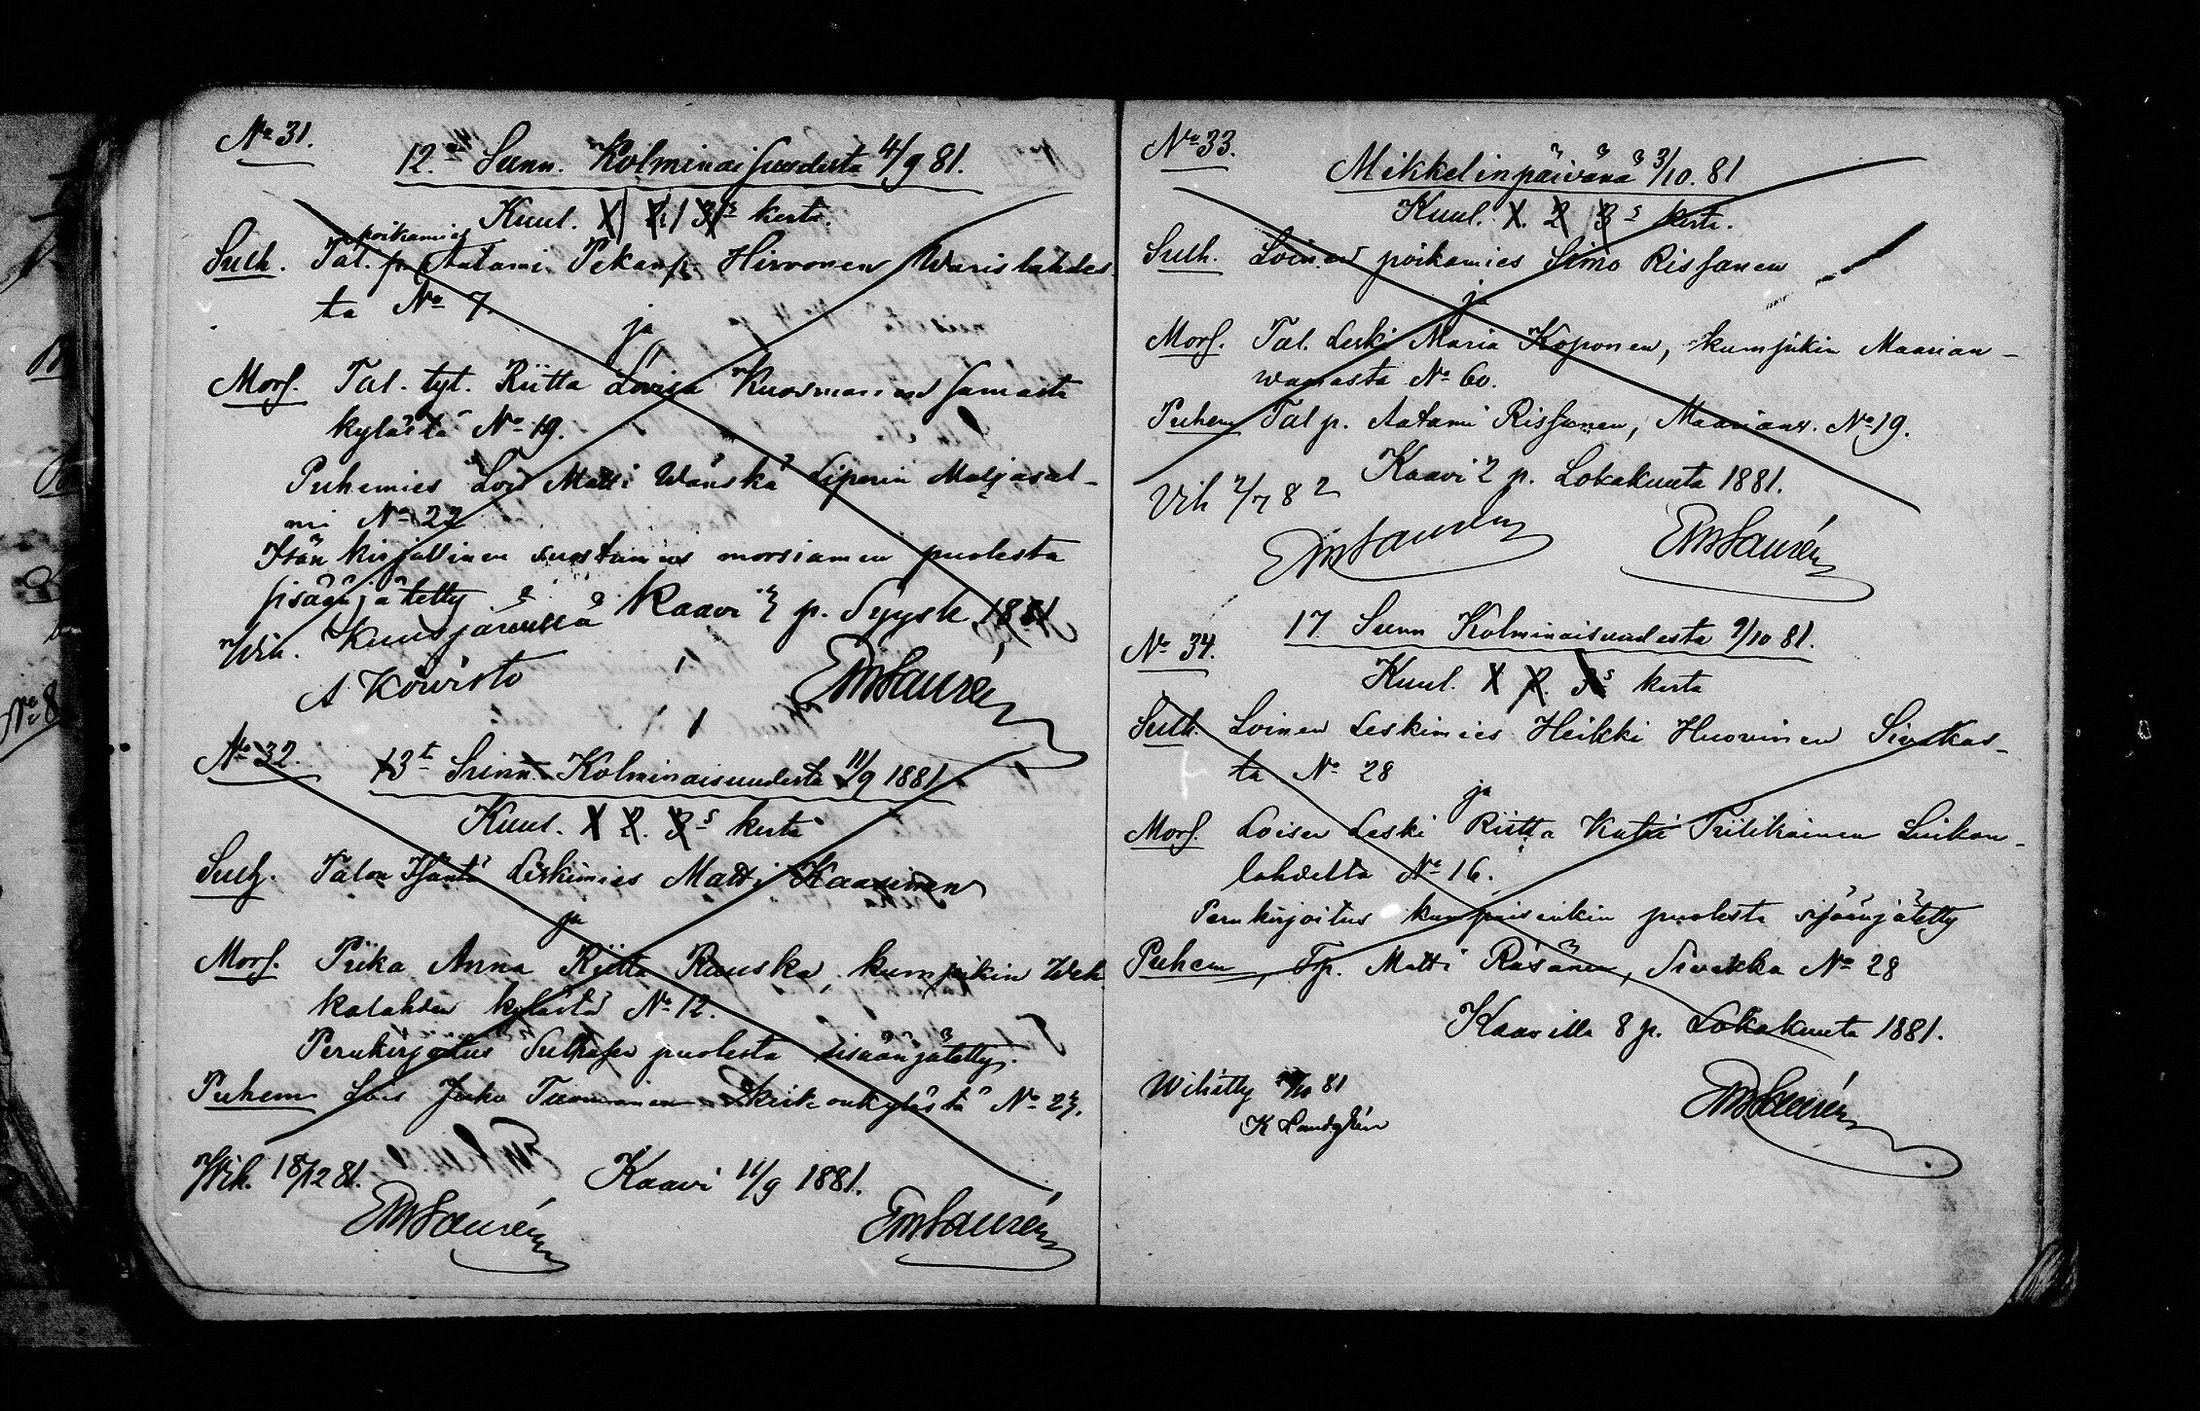 No 31.
12. Sunn. Kolminaisuudesta 4/9 81.
Kuul. X 2. 3s kerta.
poikamies
Sulh. Tal. p. Aatami Pekanp. Hirvonen Warislahdes
ta No 7.
ja
Mors. Tal. tyt. Riitta Lovisa Kuosmanen samasta
kylästä No 19.
Puhemies Lois Matti Wänskä Liperin Maljasal-
mi No 22
Isän kirjallinen suostumus morsiamen puolesta
sisäänjätetty
Kaavi 3 p. Syysk. 1881
Wih. Kuusjärvellä
A Koivisto
EmSaurén
No 32.
13t Sunn. Kolminaisuudesta 11/9 1881
Kuul. X 2. 3s kerta
Sulh. Talon Isäntä Leskimies Matti Kaasinen
ja
Mors. Piika Anna Riitta Rauska, kumpikin Weh
kalahden kylästä No 12.
Perukirjoitus Sulhasen puolesta sisäänjätetty.
Puhem Lois Juho Tuomainen kylästä No 23.
Wih. 18/12 81.
Kaavi 11/9 1881.
EmSaurén
EmSaurén
No 33.
Mikkelinpäivänä 3/10. 81
Kuul. X. 2 3s kerta.
Sulh. Loinen poikamies Simo Rissanen
ja
Mors. Tal. Leski Maria Koponen, kumpikin Maarian-
waarasta No 60.
Puhem Tal p. Aatami Rissanen, Maarianv. No 19.
Kaavi 2 p. Lokakuuta 1881.
Vih 2/7 82
EmSaurén
EmSaurén
No 34.
17 Sunn Kolminaisuudesta 9/10 81.
Kuul. X 2. 3s kerta
Sulh. Loinen Leskimies Heikki Huovinen Sivakas-
ta No 28
ja
Mors. Loisen Leski Riitta Katri Pitkänen Luikon-
lahdelta No 16.
Perukirjoitus kummaisenkin puolesta sisäänjätetty
Puhem, Tp. Matti Räsänen, Sivakka No 28
Kaavilla 8 p. Lokakuuta 1881.
Wihitty /10 81
K Landgrén
EmSaurén
No 8